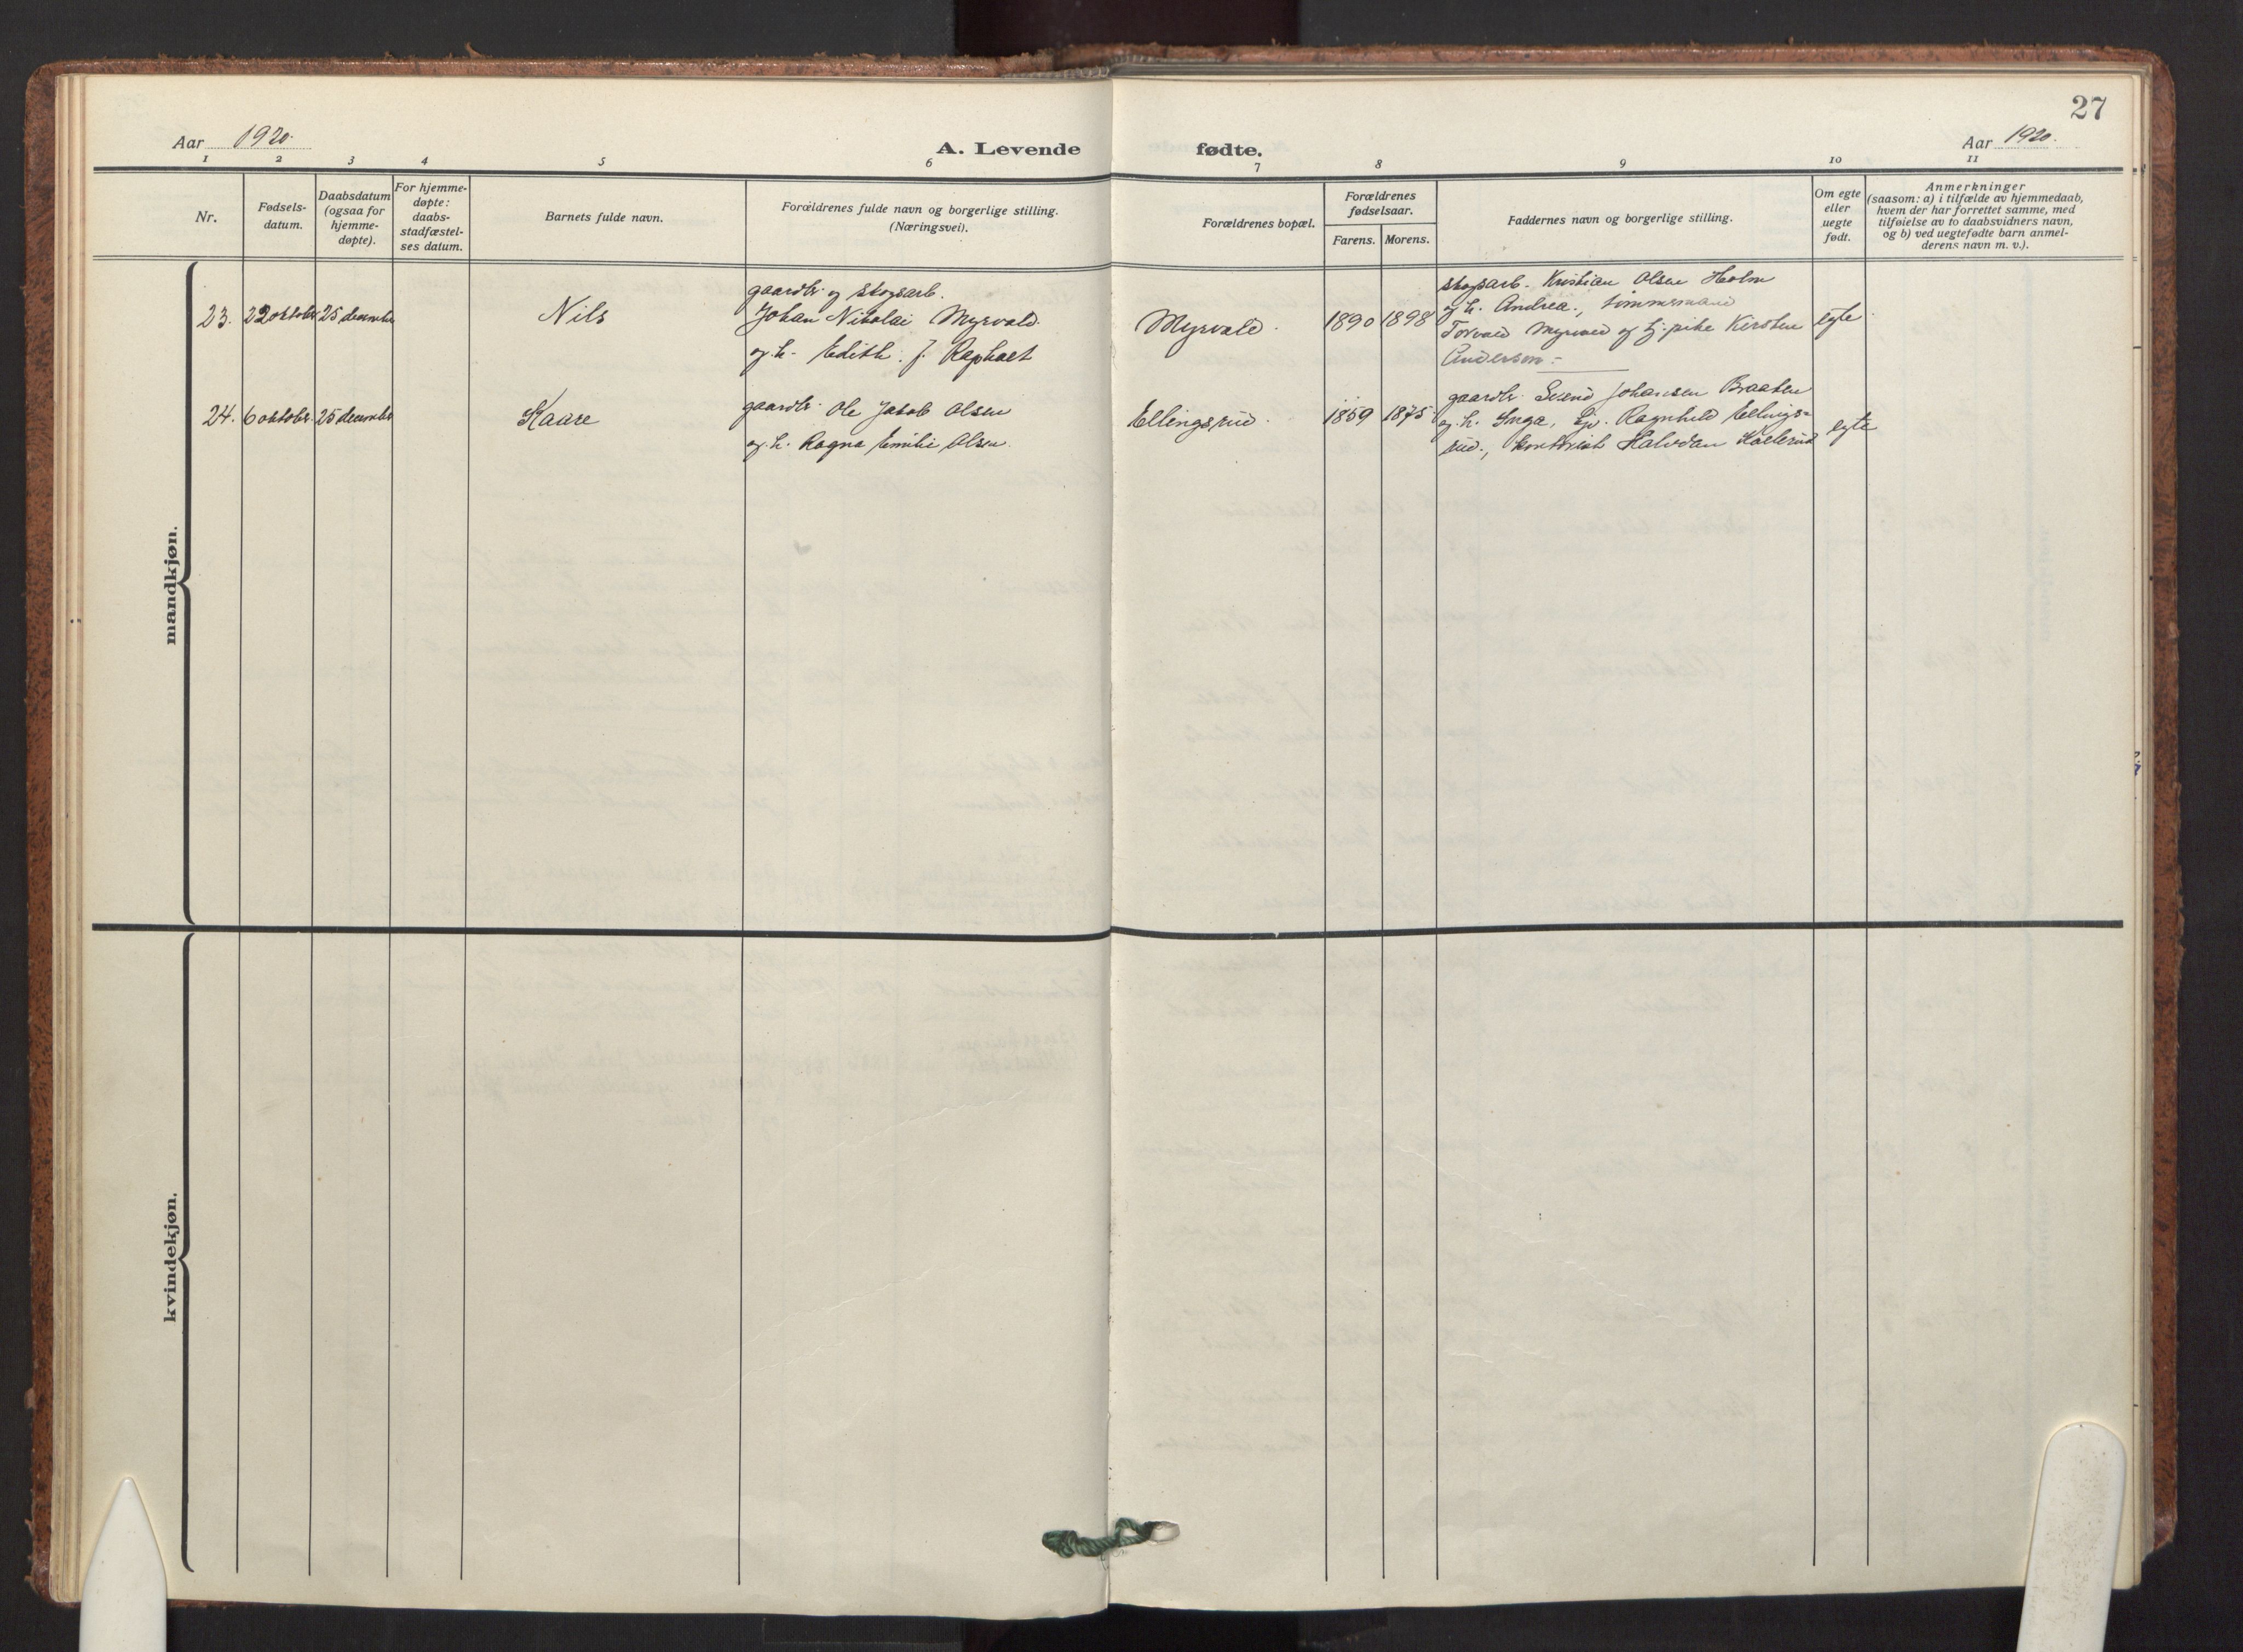 27
Aar 1920.
A. Levende fødte.
Aar 1920.
1 2 3 4 5 6 7 8 9 10 11
Nr.
Fødsels-
datum.
Daabsdatum
(ogsaa for
hjemme-
døpte).
For hjemme-
døpte:
daabs-
stadfæstel-
ses datum.
Barnets fulde navn.
Forældrenes fulde navn og borgerlige stilling.
(Næringsvei).
Forældrenes bopæl.
Forældrenes
fødselsaar.
Farens. Morens.
Faddernes navn og borgerlige stilling.
Om egte
eller
uegte
født.
Anmerkninger
(saasom: a) i tilfælde av hjemmedaab,
hvem der har forrettet samme, med
tilføielse av to daabsvidners navn,
og b) ved uegtefødte barn anmel-
derens navn m. v.).
mandkjøn.
23. 22 oktober 25 december
Nils
gaardbr. og skogsarb.
Johan Nikolai Myrvald.
og h. Edith f. Raphael
Myrvald.
1890 1898
skogsarb. Kristian Olsen Holm
og h. Andrea., tømmermand
Torvald Myrvold og tj. pike Kirsten
Anderson.-
egte
24. 6 oktober. 25 december
Kaare
gaardbr. Ole Jakob Olsen
og h. Ragna Emilie Olsen.
Ellingsrud.
1859 1875
gaardbr. Svend Johansen Braaten
og h. Inga, Gj. Ragnhild Ellings-
rud., kontorist Halvdan
egte
kvindekjøn.